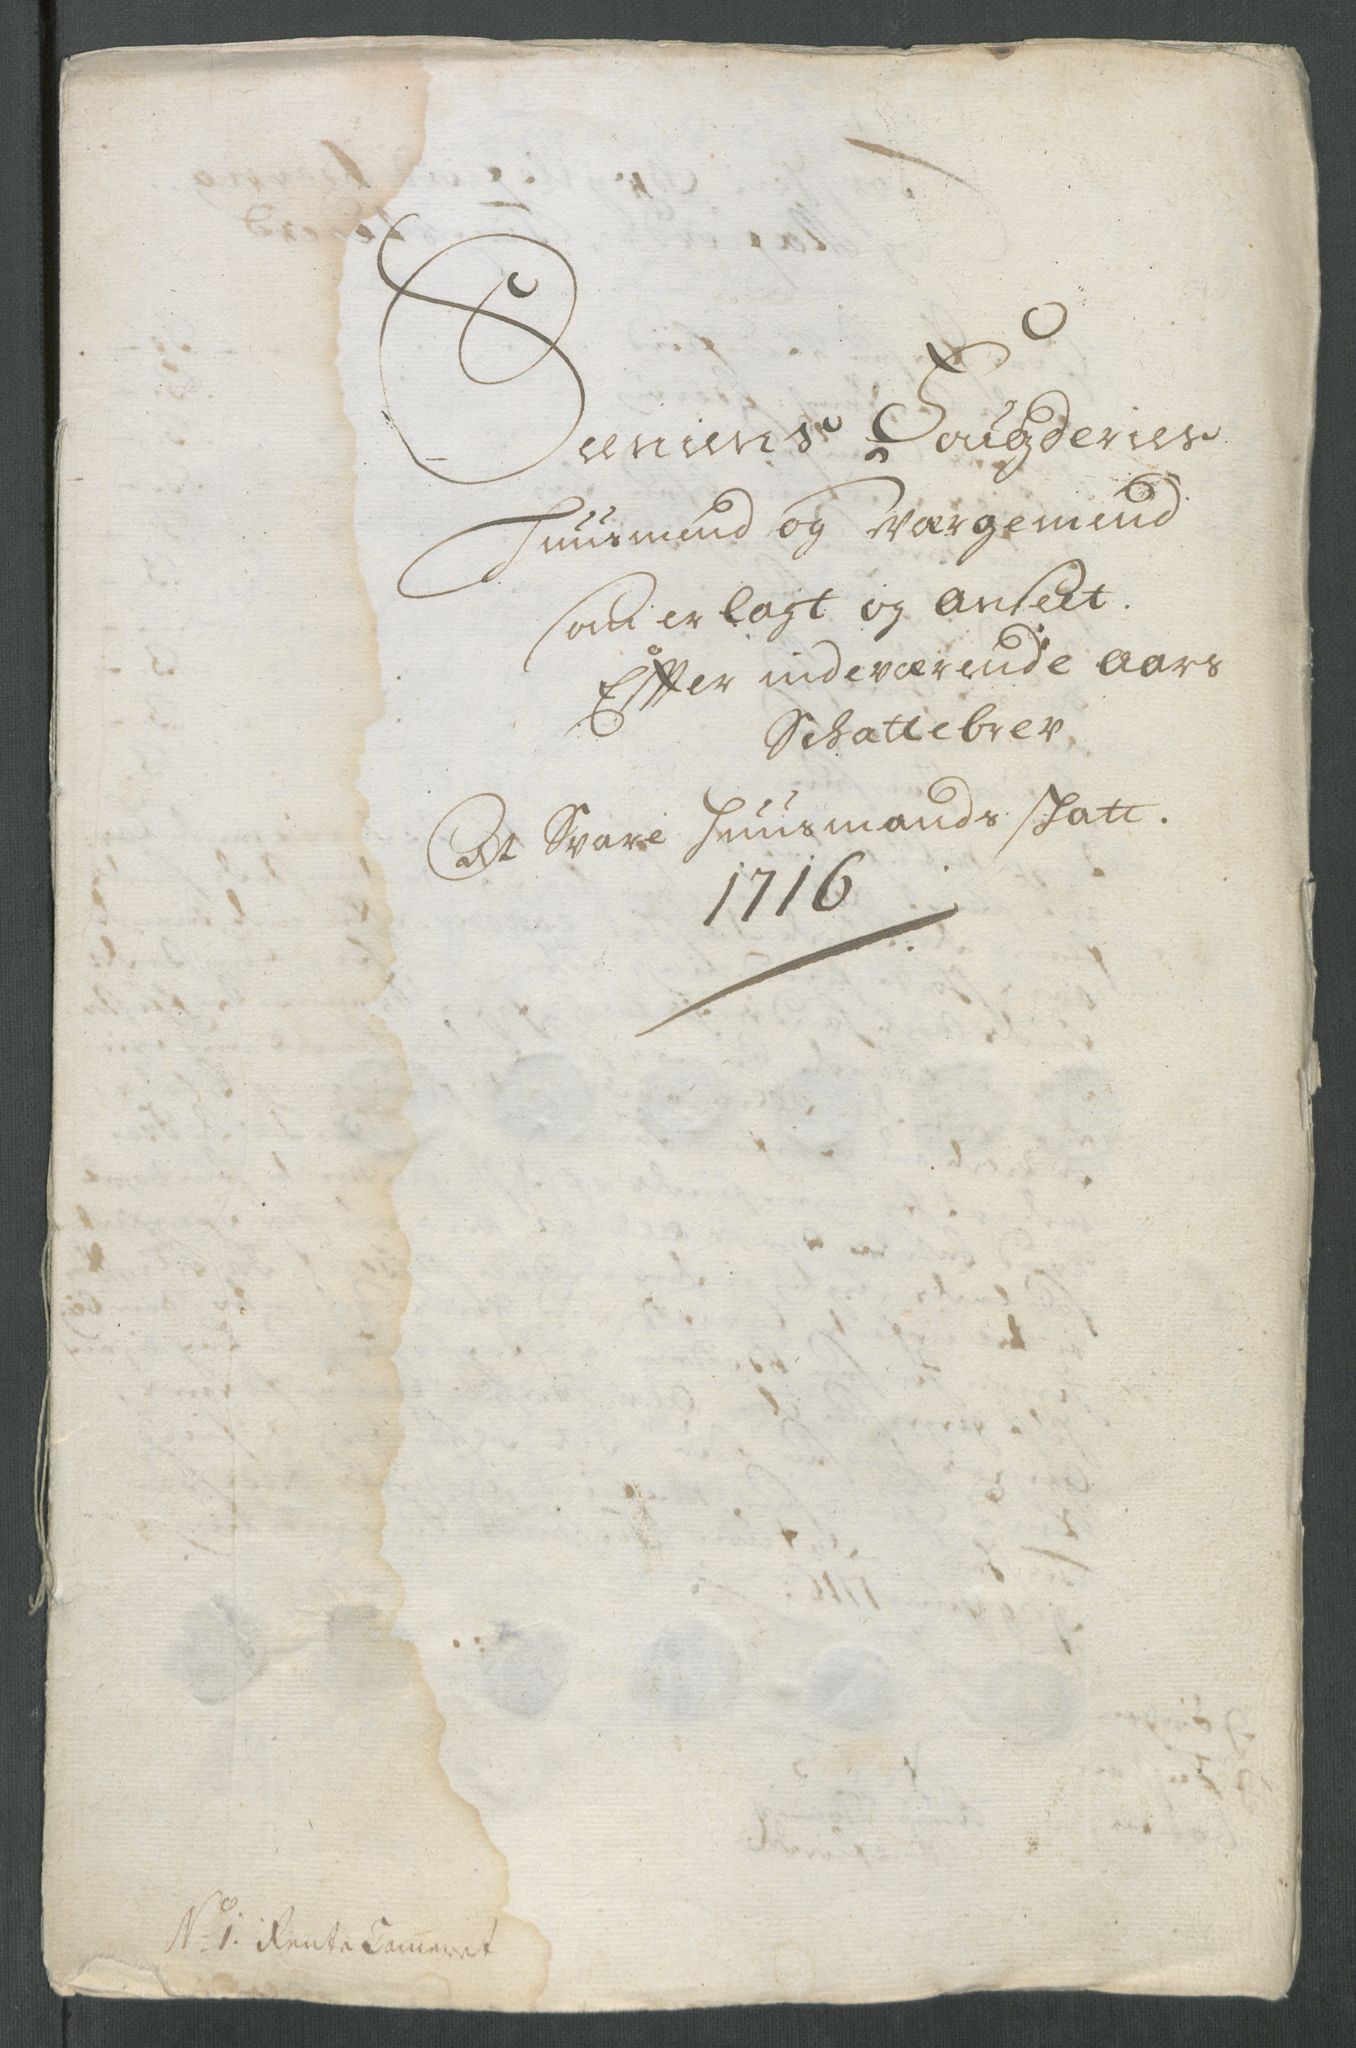 Seniens Fougderies
Huusmend og Værgemend
som er lagt og anseet.
Effter indeværende aars
Schattebrev
At Svare Huusmands skatt.
1716
No 1. Rente Cammeret